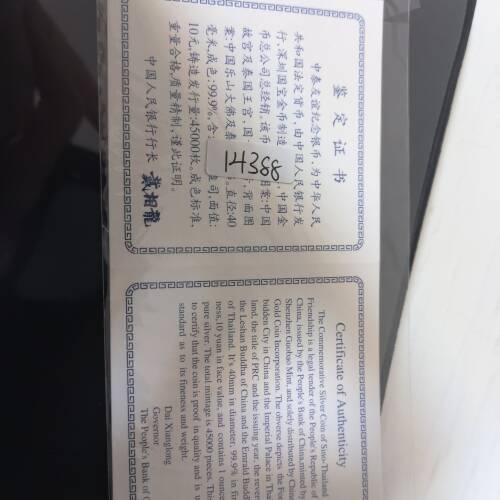 鉴定证书
中泰友谊纪念银币,为中华人民
共和国法定货币,由中国人民银行发
行,深圳国宝金币制造 ,中国金
币总公司总经销。该币 图案:中国
故宫及泰国王宫,国 ,背面图
案:中国乐山大佛及泰 。直径:40
毫米,成色:99.9%,含 盎司,面值:
10元,铸造发行量:45000枚。成色标准,
重量合格,质量精制,谨此证明。
中国人民银行行长 戴相龙
14388
Certificate of Authenticity
The Commemorative Silver Coin of Sino-Thailand
Friendship is a legal tender of the People's Republic of
China, issued by the People's Bank of China, minted by
Shenzhen Guobao Mint, and solely distributed by China
Gold Coin Incorporation. The obverse depicts the
bidden City in China and the Imperial Palace in
land, the title of PRC and the issuing year, the
the Leshan Buddha of China and the Emrald
of Thailand. It's 40mm in diameter, 99.9% in
ness, 10 yuan in face value, and contains 1 ounce
pure silver. The total mintage is 45000 pieces.
to certify that the coin is proof in quality and is
standard as to its fineness and weight.
Dai Xianglong
Governor
The People's Bank of